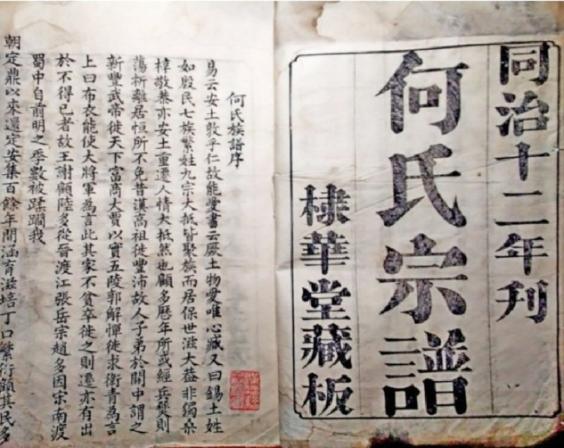 同治十二年刊
何氏宗譜
棣華堂藏板
何氏族譜序
易云安土敦乎仁故能愛書云厥土物愛唯心臧又曰錫土姓
如殷民七族繁姓九宗大抵皆聚族而居保世滋大益非獨桑
梓敬恭亦安土重遷人情大抵然也顧多歷年所或經兵燹則
蕩析離居恒所不免昔漢高祖徙豐沛故人子弟於關中謂之
新豐武帝徙天下富商大賈以實五陵郭解憚徙求衛青為言
上曰布衣能使大將軍為言此其家不貧卒徙之則遷亦有出
於不得已者故王謝顧陸多從晉渡江張岳宗趙多因宋南渡
蜀中自前明之季數被蹂躪我
朝定鼎以來還定安集百餘年間涵育滋培丁口繁衍顧其民多